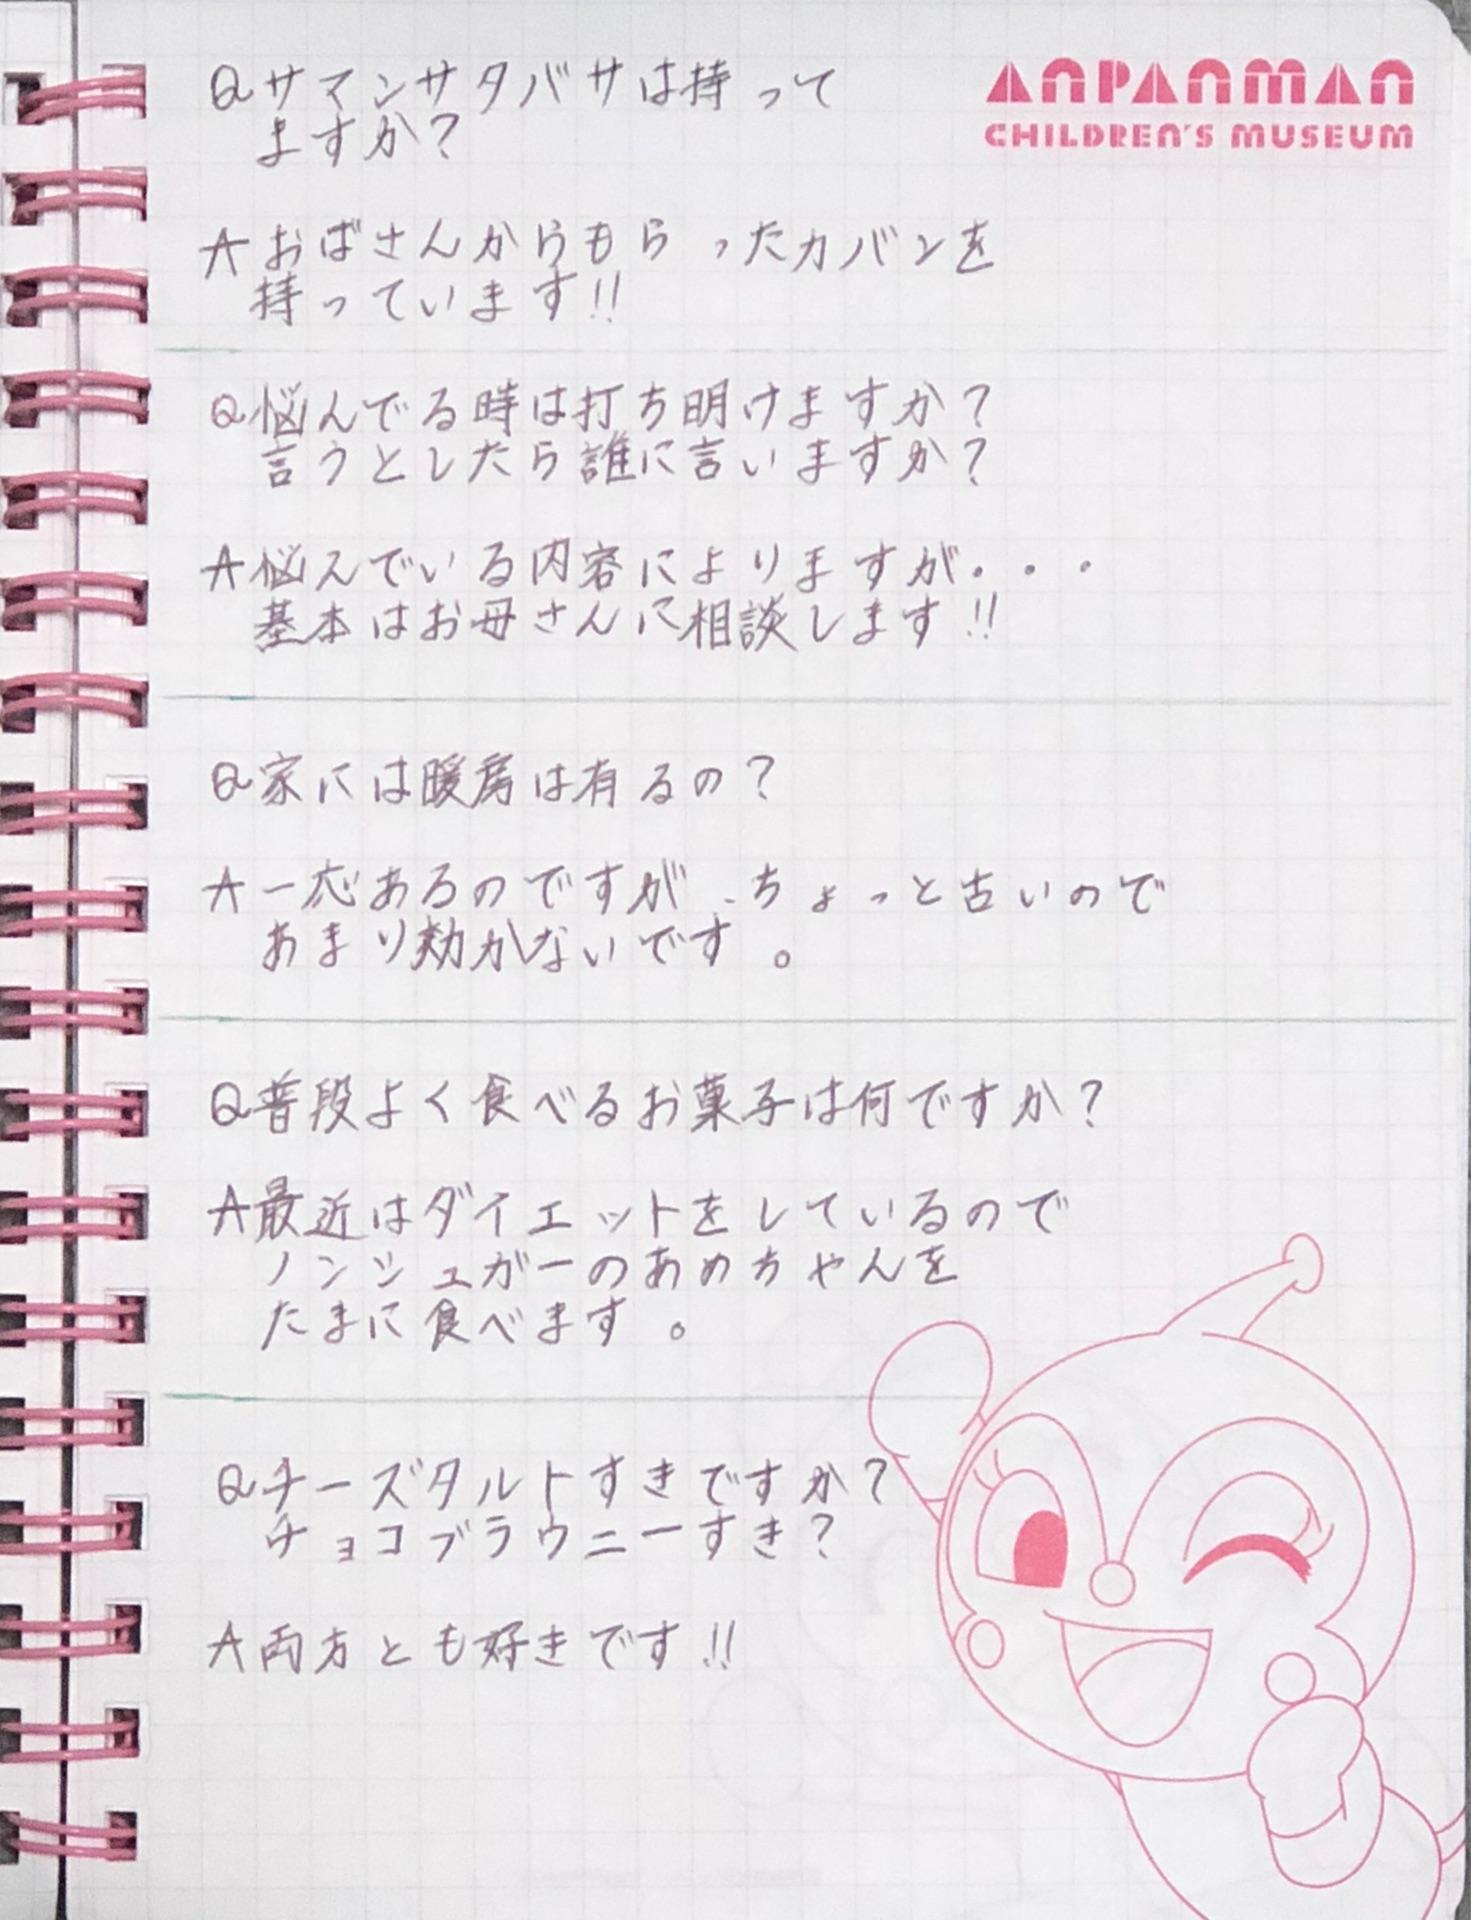 ANPANMAN
CHILDREN'S MUSEUM
Qサマンサタバサは持って
ますか?
Aおばさんからもらったカバンを
持っています!!
Q悩んでる時は打ち明けますか?
言うとしたら誰に言いますか?
A悩んでいる内容によりますが・・・
基本はお母さんに相談します!!
Q家には暖房は有るの?
A一応あるのですが、ちょっと古いので
あまり効かないです。
Q普段よく食べるお菓子は何ですか?
A最近はダイエットをしているので
ノンシュガーのあめちゃんを
たまに食べます。
Qチーズタルトすきですか?
チョコブラウニーすき?
A両方とも好きです!!